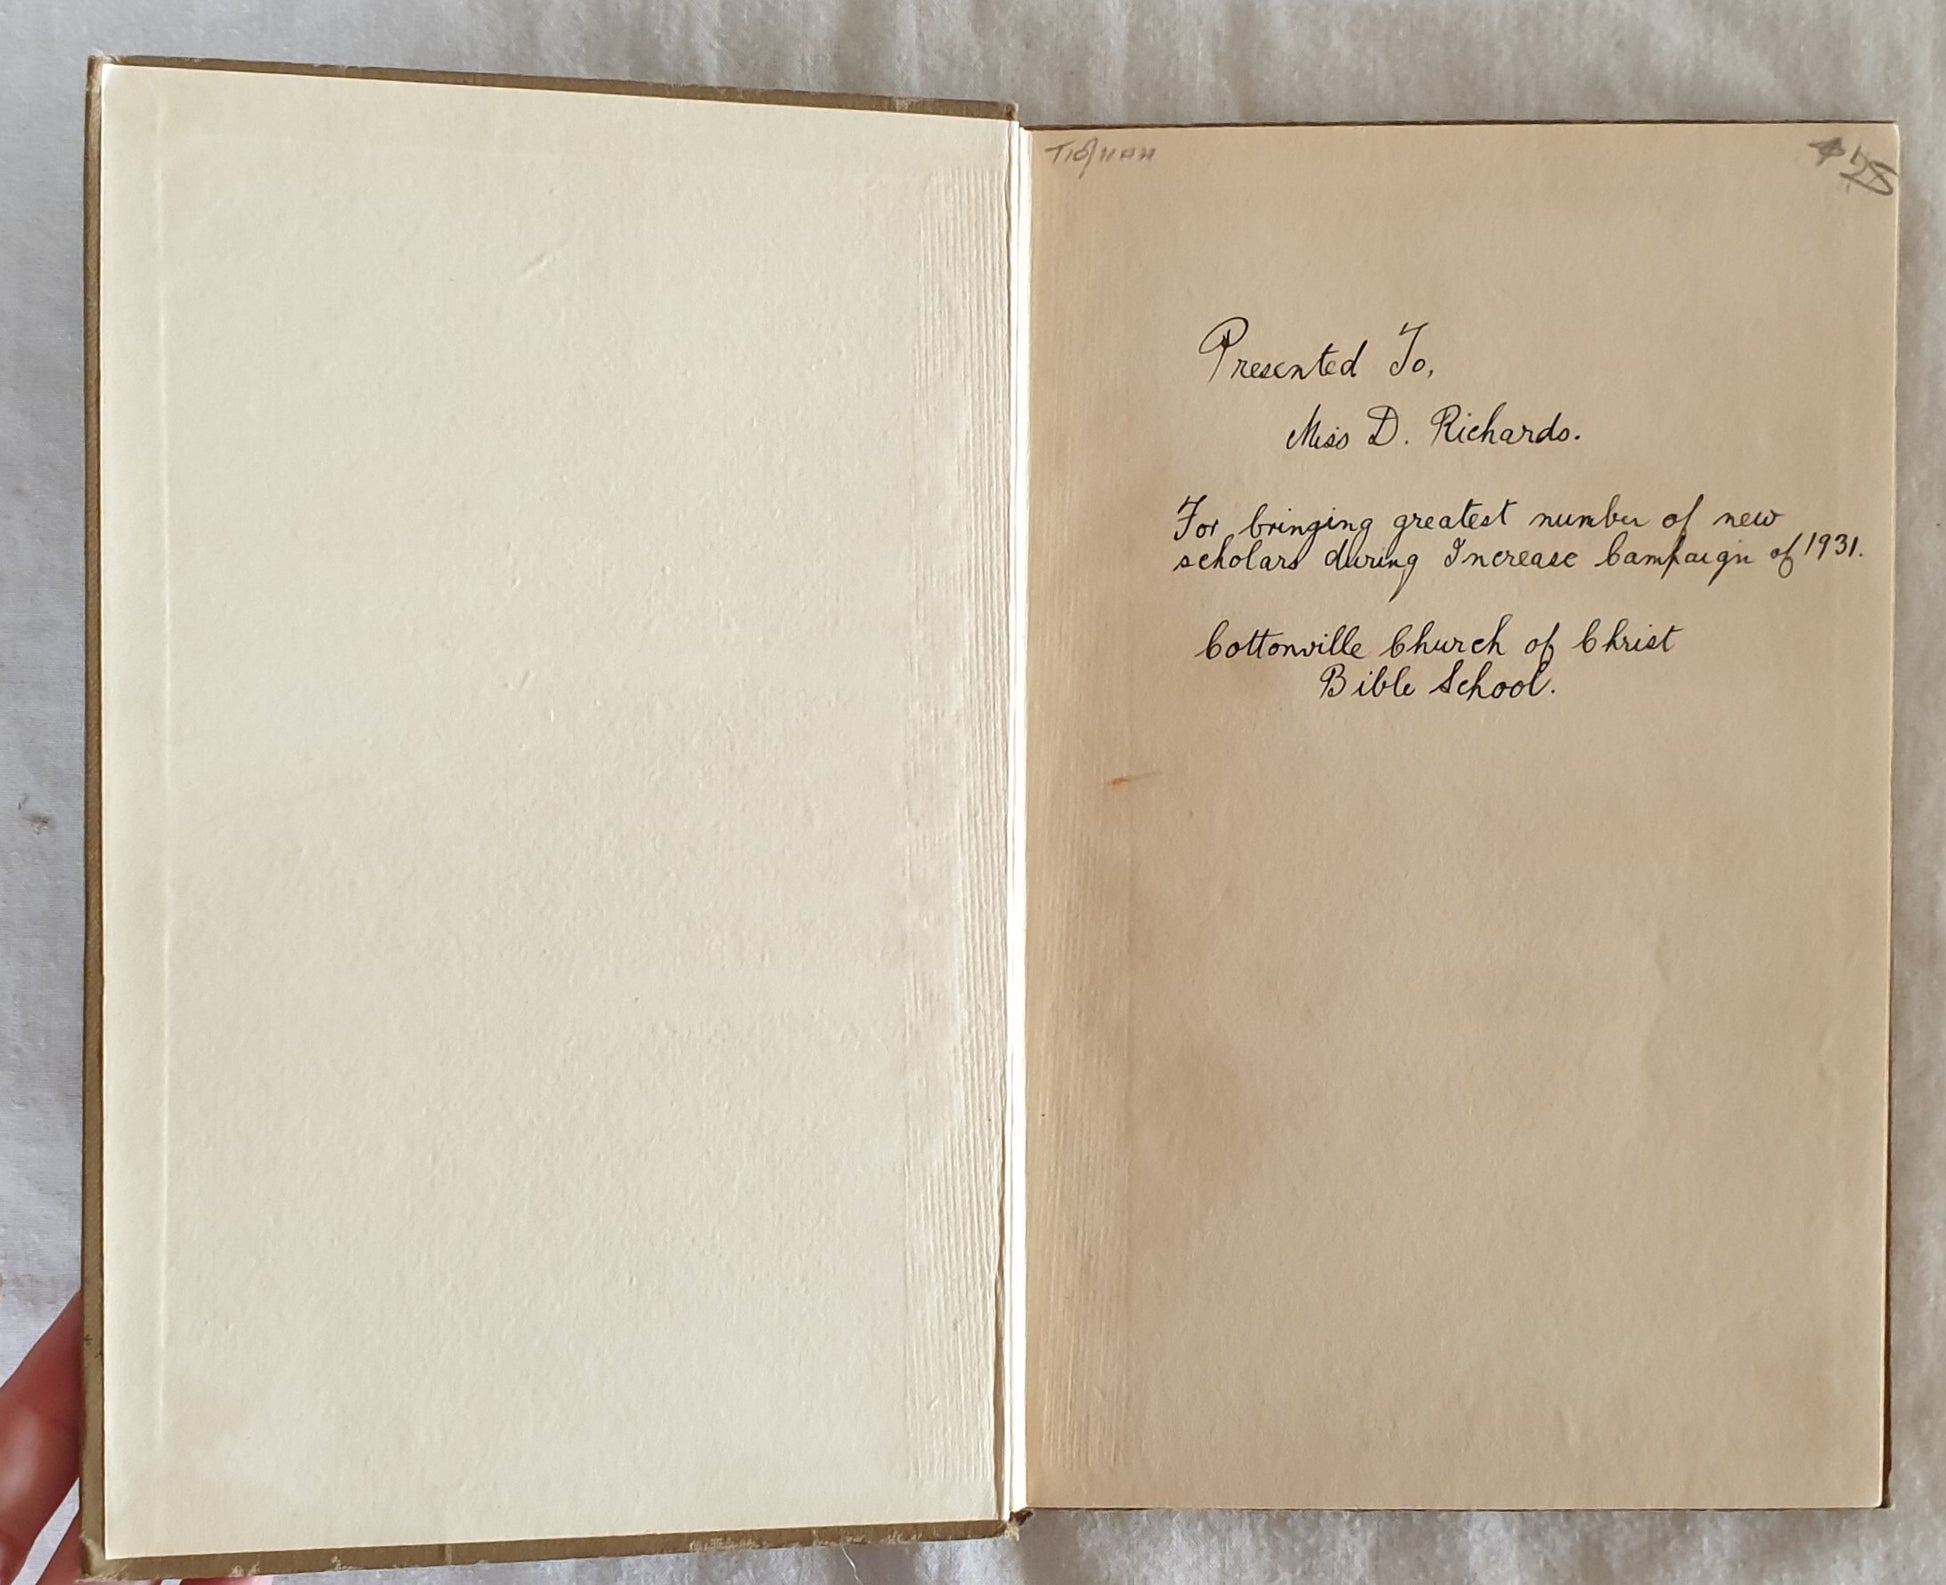 $25
Presented To,
Miss D. Richards.
For bringing greatest number of new
scholars during Increase Campaign of 1931.
Cottonville Church of Christ
Bible School.